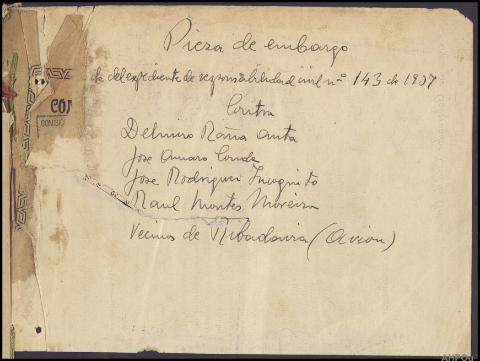 Pieza de embargo
de del expediente de responsabilidad civil nº 143 de 1937
Contra
Delmiro Raña Anta
José Amaro Conde
José Rodriguez Incognito
Raul Montes Moreira
Vecinos de Ribadavia (Avion)
CON
COMISIO
AHPOU